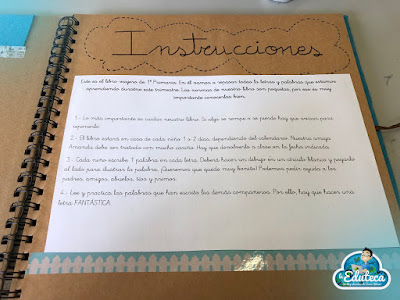 Instrucciones
Este es el libro viajero de 1º Primaria. En él vamos a repasar todas la letras y palabras que estamos
aprendiendo durante este trimestre. Las normas de nuestro libro son poquitas, por eso es muy
importante conocerlas bien.
1.- Lo más importante es cuidar nuestro libro. Si algo se rompe o se pierde hay que avisar para
reponerlo.
2.- El libro estará en casa de cada niño 1 o 2 días, dependiendo del calendario. Nuestra amiga
Amanda debe ser tratada con mucho cariño. Hay que devolverlo a clase en la fecha indicada.
3.- Cada niño escribe 1 palabra en cada letra. Deberá hacer un dibujo en un círculo blanco y pegarlo
al lado para ilustrar la palabra. ¡Queremos que quede muy bonito! Podemos pedir ayuda a los
padres, amigos, abuelos, tíos y primos.
4.- Lee y practica las palabras que han escrito los demás compañeros. Por ello, hay que hacer una
letra FANTÁSTICA.
la Eduteca